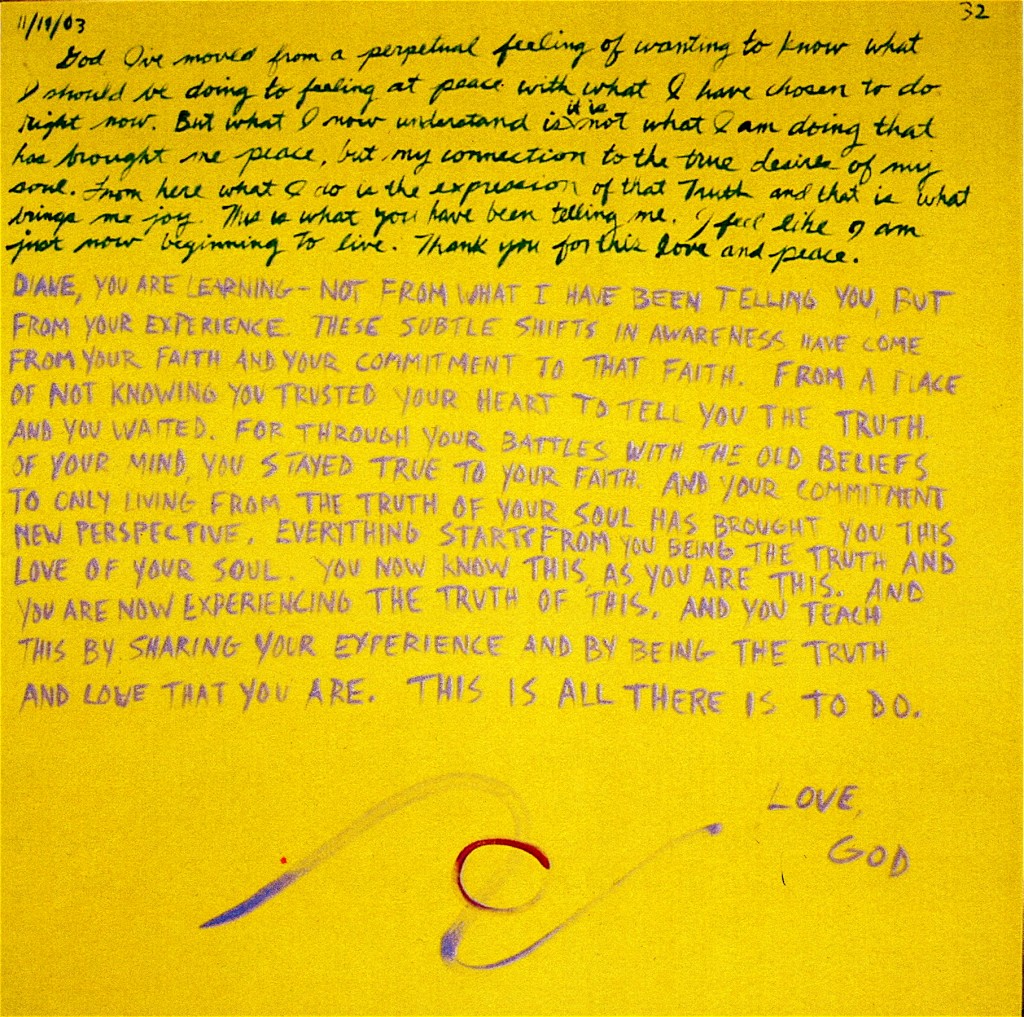 11/19/03
32
God I've moved from a perpetual feeling of wanting to know what
I should be doing to feeling at peace with what I have chosen to do
right now. But what I now understand is it is not what I am doing that
has brought me peace, but my connection to the true desires of my
soul. From here what I do is the expression of that Truth and that is what
brings me joy. This is what you have been telling me. I feel like I am
just now beginning to live. Thank you for this love and peace.
DIANE, YOU ARE LEARNING - NOT FROM WHAT I HAVE BEEN TELLING YOU, BUT
FROM YOUR EXPERIENCE. THESE SUBTLE SHIFTS IN AWARENESS HAVE COME
FROM YOUR FAITH AND YOUR COMMITMENT TO THAT FAITH. FROM A PLACE
OF NOT KNOWING YOU TRUSTED YOUR HEART TO TELL YOU THE TRUTH.
AND YOU WAITED. FOR THROUGH YOUR BATTLES WITH THE OLD BELIEFS
OF YOUR MIND, YOU STAYED TRUE TO YOUR FAITH. AND YOUR COMMITMENT
TO ONLY LIVING FROM THE TRUTH OF YOUR SOUL HAS BROUGHT YOU THIS
NEW PERSPECTIVE. EVERYTHING STARTS FROM YOU BEING THE TRUTH AND
LOVE OF YOUR SOUL. YOU NOW KNOW THIS, AS YOU ARE THIS. AND
YOU ARE NOW EXPERIENCING THE TRUTH OF THIS. AND YOU TEACH
THIS BY SHARING YOUR EXPERIENCE AND BY BEING THE TRUTH
AND LOVE THAT YOU ARE. THIS IS ALL THERE IS TO DO.
LOVE,
GOD